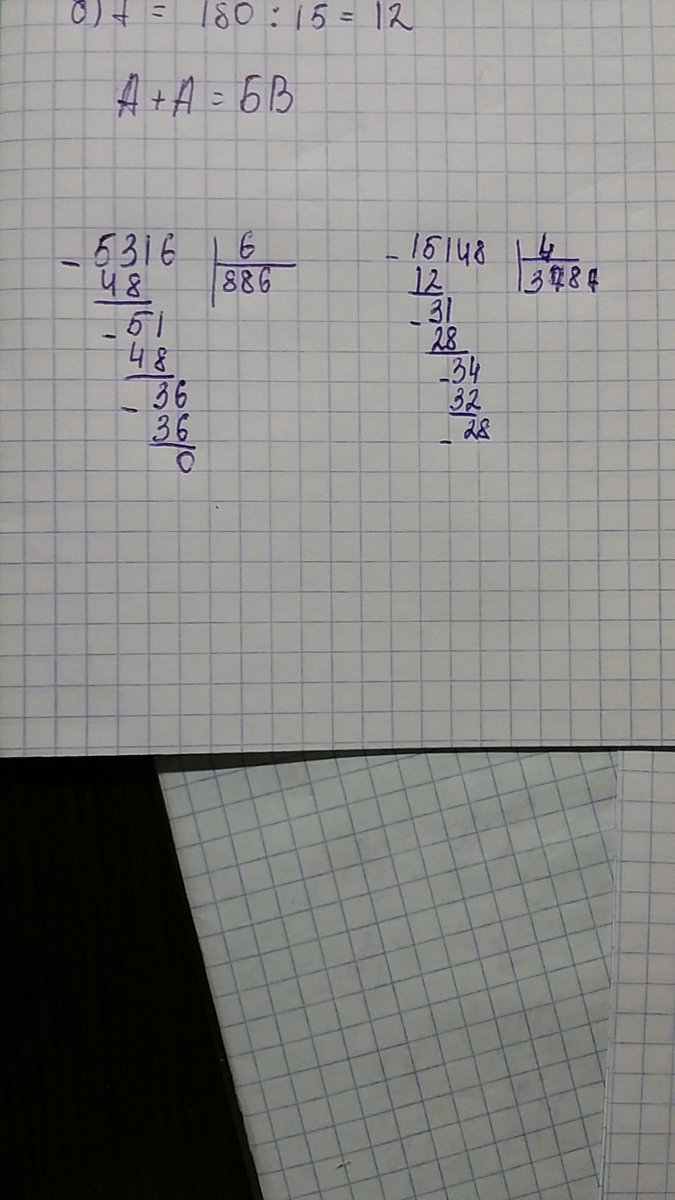 б) t = 180 : 15 = 12
А + А = БВ
- 5316 | 6
48 | 886
- 51
48
- 36
36
0
- 15148 | 4
12 | 3787
- 31
28
- 34
32
- 28